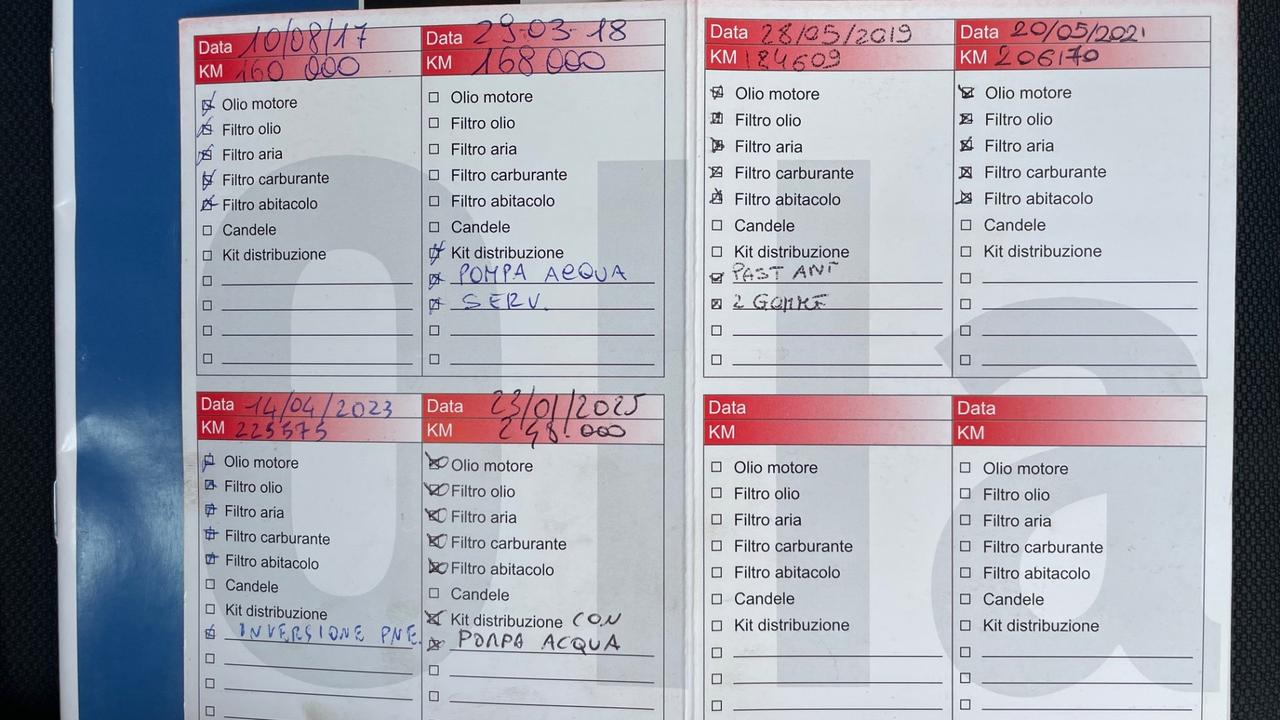 Data 10/08/17
KM 160 000
Olio motore
Filtro olio
Filtro aria
Filtro carburante
Filtro abitacolo
Candele
Kit distribuzione
Data 29-03-18
KM 168000
Olio motore
Filtro olio
Filtro aria
Filtro carburante
Filtro abitacolo
Candele
Kit distribuzione
POMPA ACQUA
SERV.
Data 28/05/2019
KM 184609
Olio motore
Filtro olio
Filtro aria
Filtro carburante
Filtro abitacolo
Candele
Kit distribuzione
PAST ANT
2 GOMME
Data 20/05/2021
KM 206170
Olio motore
Filtro olio
Filtro aria
Filtro carburante
Filtro abitacolo
Candele
Kit distribuzione
Data 14/04/2023
KM 225575
Olio motore
Filtro olio
Filtro aria
Filtro carburante
Filtro abitacolo
Candele
Kit distribuzione
INVERSIONE PNE.
Data 23/01/2025
KM 248.000
Olio motore
Filtro olio
Filtro aria
Filtro carburante
Filtro abitacolo
Candele
Kit distribuzione CON
POMPA ACQUA
Data
KM
Olio motore
Filtro olio
Filtro aria
Filtro carburante
Filtro abitacolo
Candele
Kit distribuzione
Data
KM
Olio motore
Filtro olio
Filtro aria
Filtro carburante
Filtro abitacolo
Candele
Kit distribuzione
olla